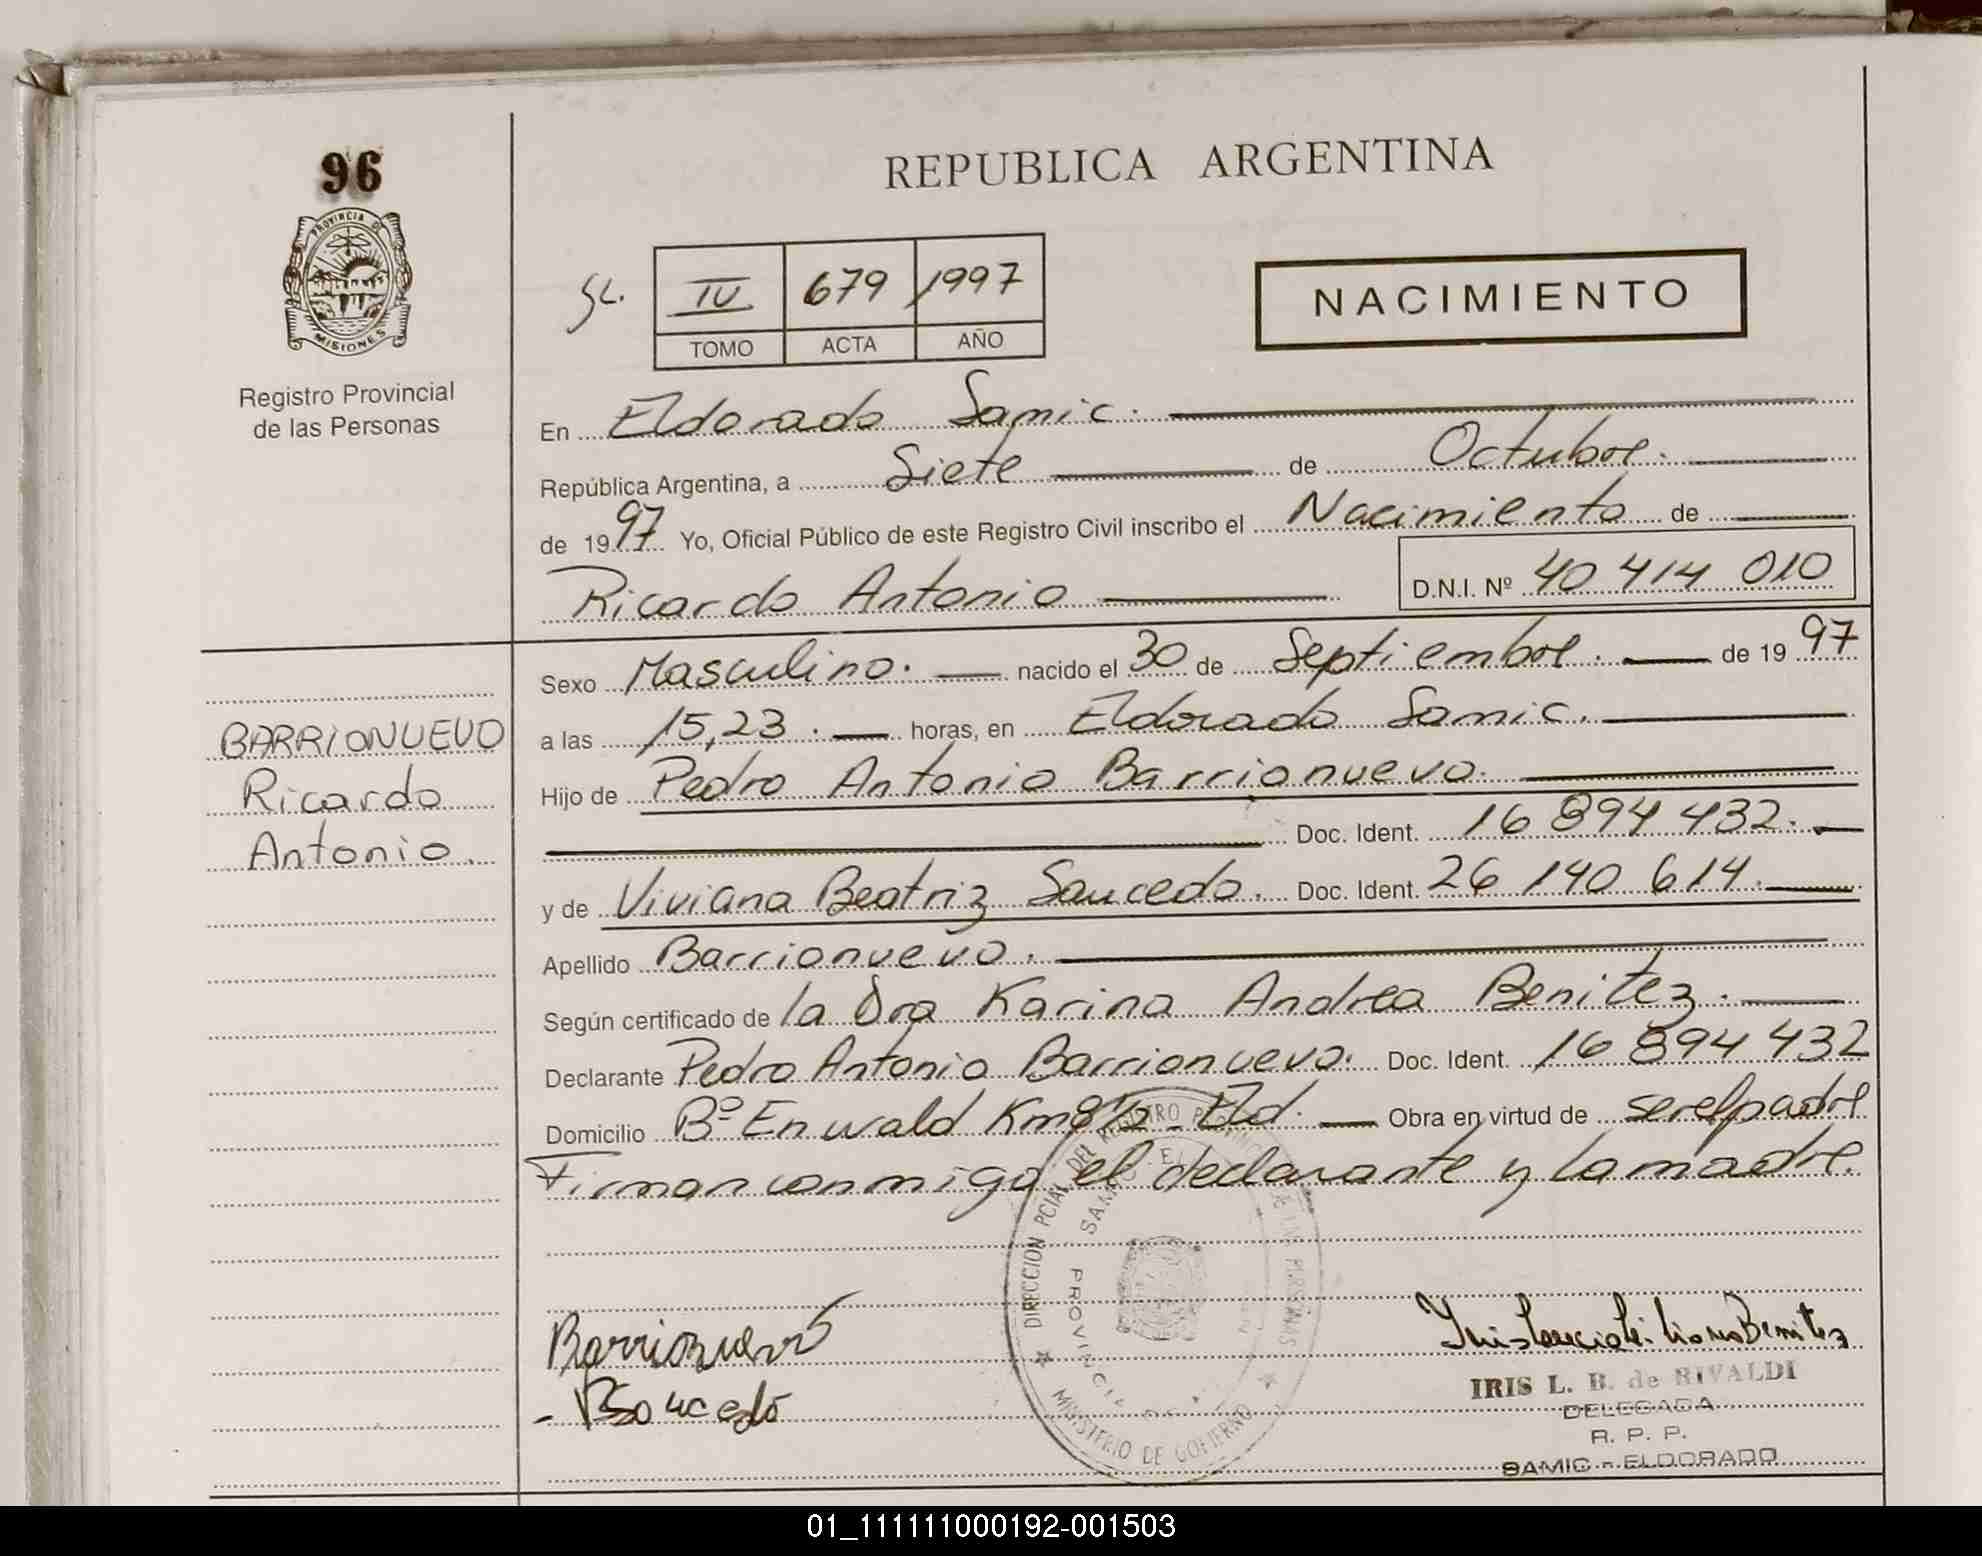 96
PROVINCIA DE
MISIONES
Registro Provincial
de las Personas
REPUBLICA ARGENTINA
SL. IV 679 1997
TOMO ACTA AÑO
NACIMIENTO
En Eldorado Samic.
República Argentina, a Siete de Octubre.
de 1997 Yo, Oficial Público de este Registro Civil inscribo el Nacimiento de
Ricardo Antonio D.N.I. Nº 40 414 010
Sexo Masculino. nacido el 30 de Septiembre. de 19 97
a las 15,23. horas, en Eldorado Samic.
Hijo de Pedro Antonio Barrionuevo.
Doc. Ident. 16 894 432.
y de Viviana Beatriz Saucedo. Doc. Ident. 26 140 614.
Apellido Barrionuevo.
Según certificado de la Dra Karina Andrea Benitez.
Declarante Pedro Antonio Barrionuevo. Doc. Ident. 16 894 432
Domicilio Bº Enwald Km 8 1/2 - Eld. Obra en virtud de ser el padre
Firman conmigo el declarante y la madre.
BARRIONUEVO
Ricardo
Antonio.
Barrionuevo
Saucedo
DIRECCION PCIAL. DEL REGISTRO PROVINCIAL DE LAS PERSONAS
MINISTERIO DE GOBIERNO
PROVINCIA
IRIS L. B. de RIVALDI
DELEGADA
R. P. P.
SAMIC - ELDORADO
01_111111000192-001503